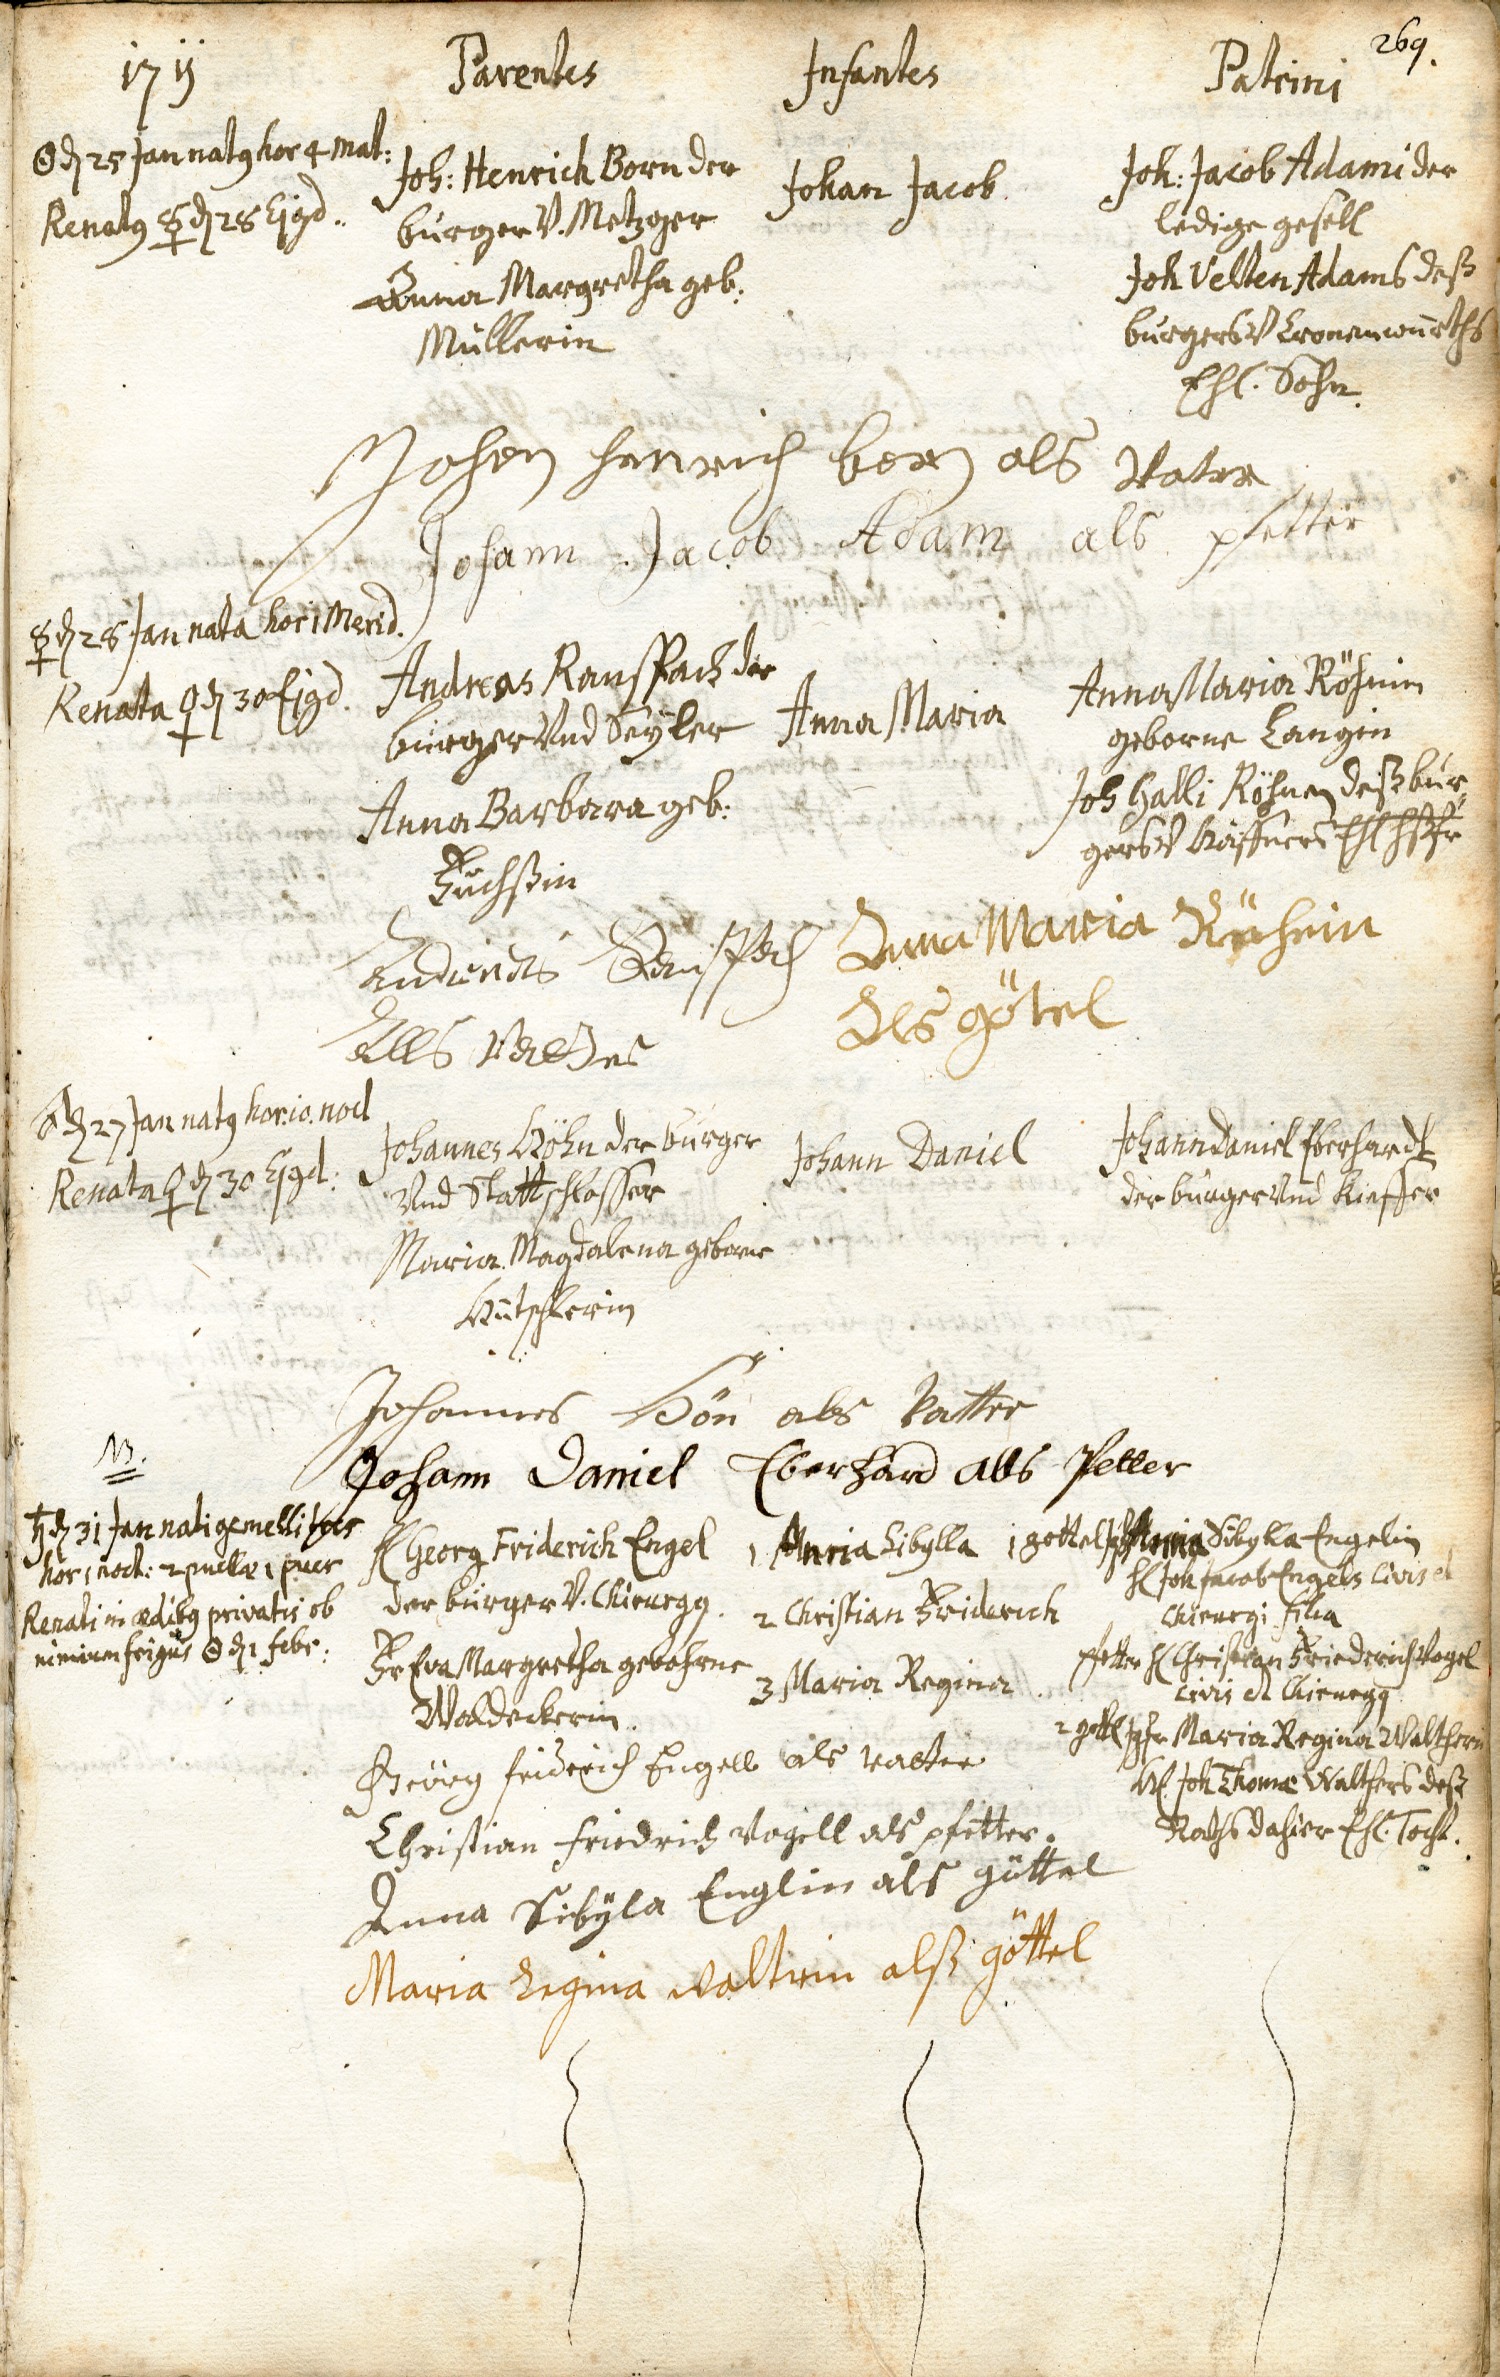 269.
1711 Parentes Infantes Patrini
☉ d 25 Jan natg hor 4 mat:
Renatg ☿ d 28 Ejgd.
Joh: Henrich Born der
burger V. Metzger
Anna Margretha geb:
Müllerin
Johan Jacob
Joh: Jacob Adami der
ledige gesell
Joh Velten Adams deß
burgers V Cronenwürths
Ehl. Sohn.
Johen henrich born als Vatter
Johann Jacob Adam als pfetter
☿ d 28 Jan nata hor 1 Merid.
Renata ♀ d 30 Ejgd.
Andreas Ranspach der
burger Vnd Seyler
Anna Barbara geb:
Fuchßin
Anna Maria
Anna Maria Röhnin
geborne Langin
Joh Galli Röhnen deß bur
gers V Haffners Ehl
Andreas Ranspach
Als Vatter
Anna Maria Röhnin
Als götel
♂ d 27 Jan natg hor. 10. noct
Renata ♀ d 30 Ejgd:
Johannes Höhn der burger
Vnd Statt schlosser
Maria Magdalena geborne
Johann Daniel
Johann Daniel Eberhardt
der burger Vnd Kieffer
Johannes Hön als Vatter
Johann Daniel Eberhard alls Petter
NB.
♄ d 31 Jan nati gemelli tres
hor 1 noct: 2 puellæ 1 puer
Renati in ædibg privatis ob
nimium frigus ☉ d 1 febr:
H Georg Friderich Engel
der burger V. Chirurgg.
Fr Eva Margretha gebohrne
Waldeckerin.
1 Anna Sibylla
2 Christian Friderich
3 Maria Regina
1 göttel Jgfr Anna Sibylla Engelin
H Joh Jacob Engels Civis et
Chirurgi filia
pfetter H Christian Friederich Vogel
civis et Chirurgg
2 gottl Jgfr Maria Regina Waltherin
H. Joh Thomæ Walthers deß
Raths dahier Ehl. Tocht.
Georg friderich Engell als Vatter
Christian friedrich Vogell als pfetter.
Anna Sibyla Englin als göttel
Maria Regina Waltrin alß göttel